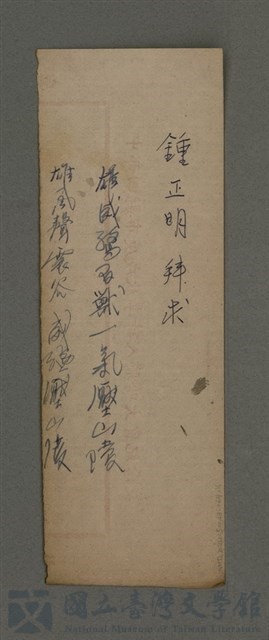 鍾正明 拜求
雄威猛百獸一氣壓山隈
雄風聲震谷 威猛壓山隈
國立臺灣文學館
National Museum of Taiwan Literature